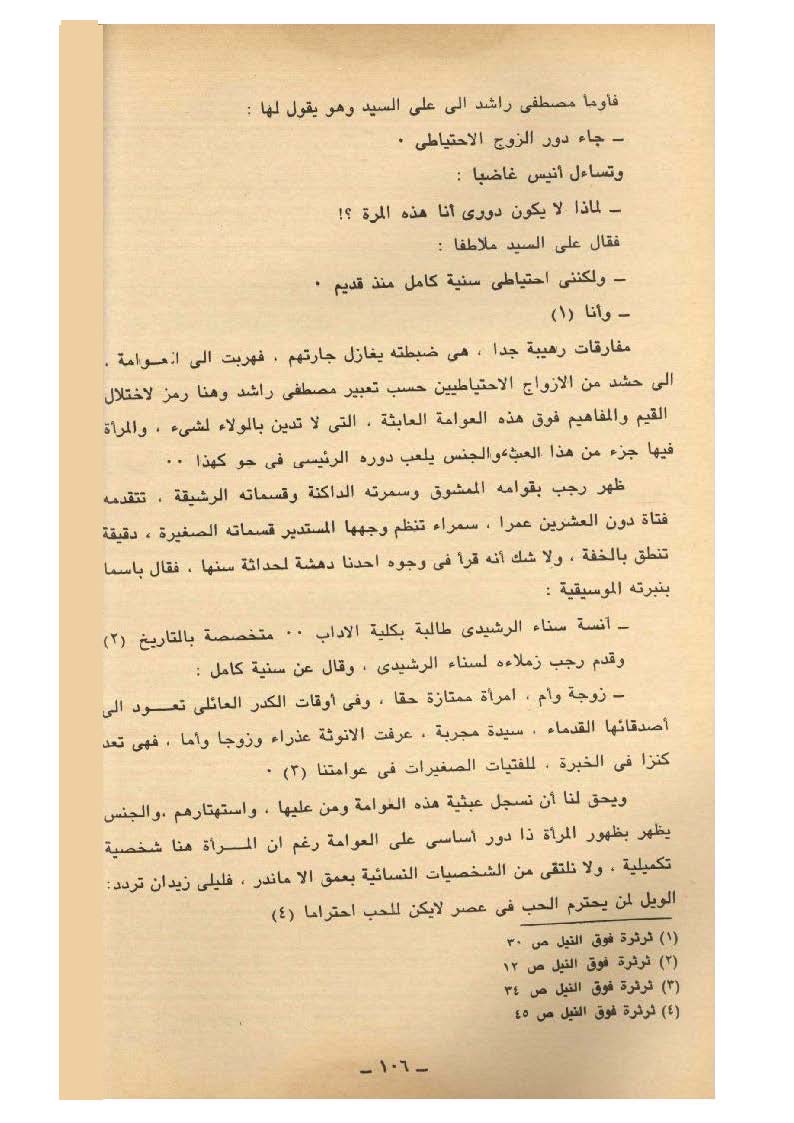 فأومأ مصطفى راشد الى على السيد وهو يقول لها :
ـ جاء دور الزوج الاحتياطى ٠
وتساءل أنيس غاضبا :
ـ لماذا لا يكون دورى أنا هذه المرة ؟!
فقال على السيد ملاطفا :
ـ ولكننى احتياطى سنية كامل منذ قديم ٠
ـ وأنا (١)
مفارقات رهيبة جدا ، هى ضبطته يغازل جارتهم ، فهربت الى العـوامة ،
الى حشد من الازواج الاحتياطيين حسب تعبير مصطفى راشد وهنا رمز لاختلال
القيم والمفاهيم فوق هذه العوامة العابثة ، التى لا تدين بالولاء لشىء ، والمرأة
فيها جزء من هذا العبث، والجنس يلعب دوره الرئيسى فى جو كهذا ٠٠
ظهر رجب بقوامه الممشوق وسمرته الداكنة وقسماته الرشيقة ، تتقدمه
فتاة دون العشرين عمرا ، سمراء تنظم وجهها المستدير قسماته الصغيرة ، دقيقة
تنطق بالخفة ، ولا شك أنه قرأ فى وجوه احدنا دهشة لحداثة سنها ، فقال باسما
بنبرته الموسيقية :
ـ آنسة سناء الرشيدى طالبة بكلية الاداب ٠٠ متخصصة بالتاريخ (٢)
وقدم رجب زملاءه لسناء الرشيدى ، وقال عن سنية كامل :
ـ زوجة وأم ، امرأة ممتازة حقا ، وفى أوقات الكدر العائلى تعـــود الى
أصدقائها القدماء ، سيدة مجربة ، عرفت الانوثة عذراء وزوجا وأما ، فهى تعد
كنزا فى الخبرة ، للفتيات الصغيرات فى عوامتنا (٣) ٠
ويحق لنا أن نسجل عبثية هذه العوامة ومن عليها ، واستهتارهم ،والجنس
يظهر بظهور المرأة ذا دور أساسى على العوامة رغم ان المـــرأة هنا شخصية
تكميلية ، ولا نلتقى من الشخصيات النسائية بعمق الا ماندر ، فليلى زيدان تردد:
الويل لمن يحترم الحب فى عصر لايكن للحب احتراما (٤)
(١) ثرثرة فوق النيل ص ٣٠
(٢) ثرثرة فوق النيل ص ١٢
(٣) ثرثرة فوق النيل ص ٣٤
(٤) ثرثرة فوق النيل ص ٤٥
ـ ١٠٦ ـ